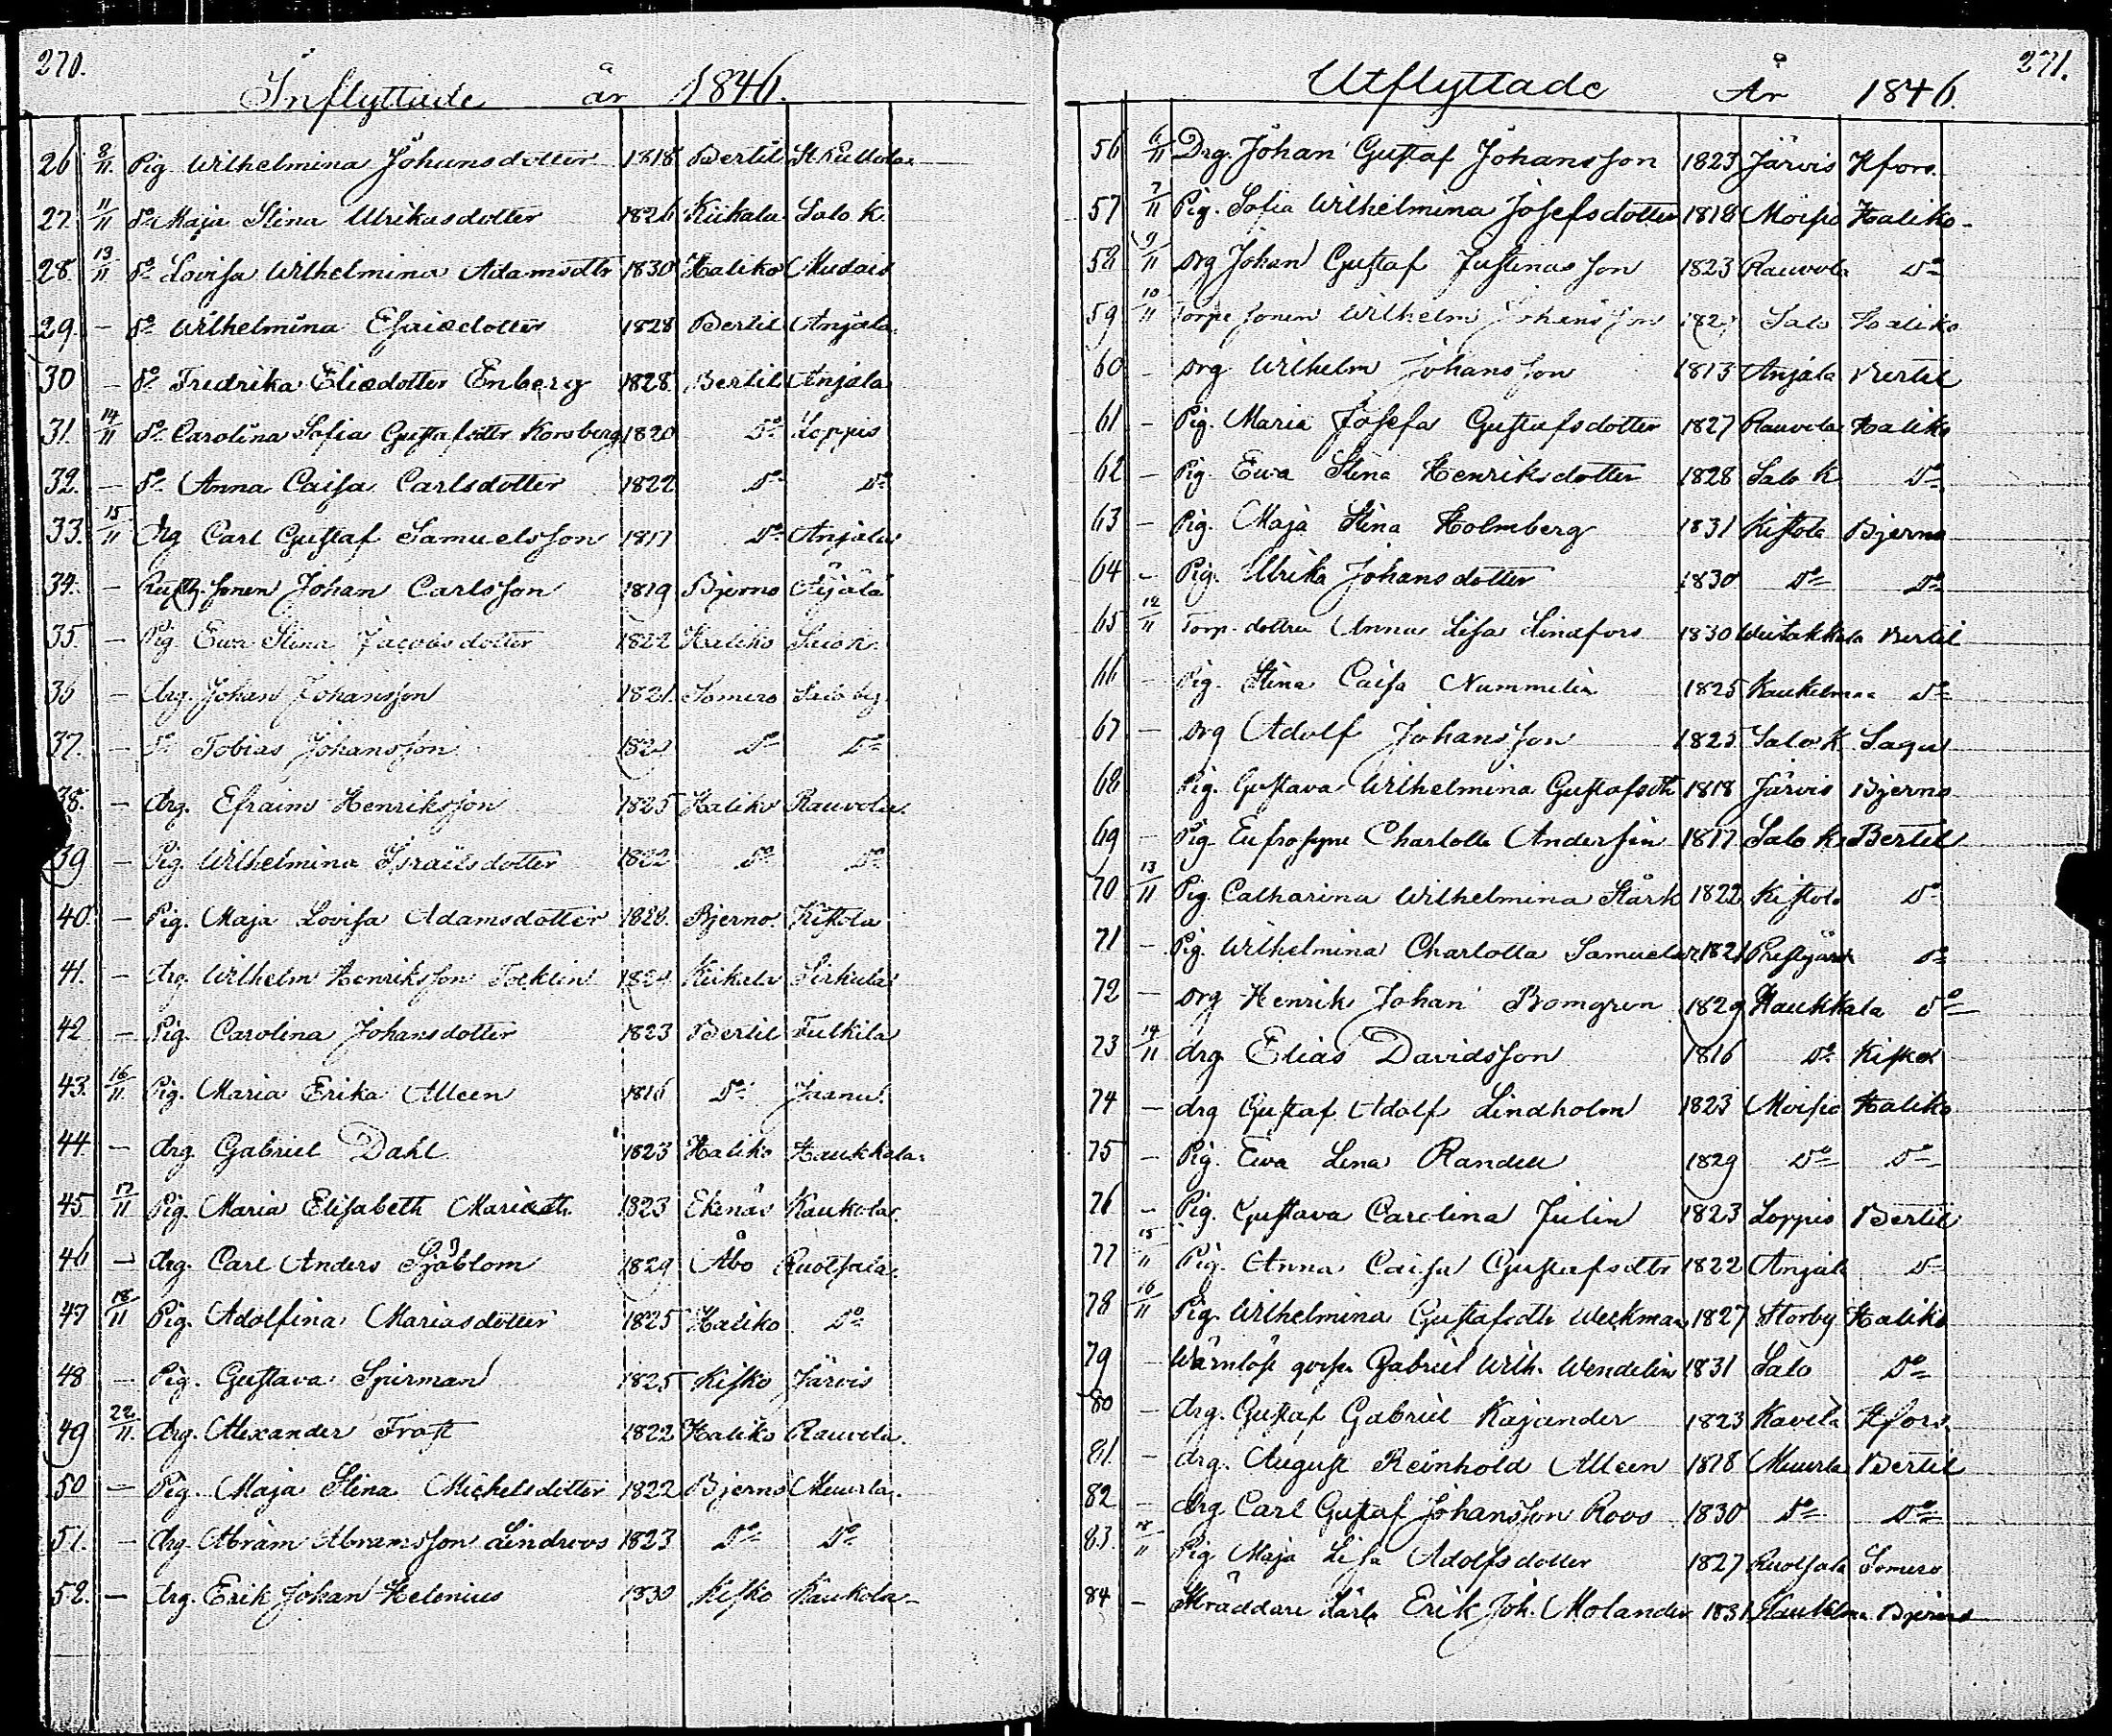 270.
Inflyttade år 1846.
26 8/11. Pig Wilhelmina Johansdotter 1818 Bertil
27. 11/11 Do Maja Stina Ulrikasdotter 1826 Kiikala Salo K.
28. 13/11 Do Lovisa Wilhelmina Adamsdtr 1830 Haliko
29. – Do Wilhelmina Esaiedotter 1828 Bertil Anjala.
30 – Do Fredrika Eliedotter Enberg 1828 Bertil Anjala
31. 14/11 Do Carolina Sofia Gustafsdtr Korsberg 1820 Do Loppis
32. – Do Anna Caisa Carlsdotter 1822 Do Do
33. 15/11 Drg Carl Gustaf Samuelsson 1817 Do Anjala
34. – Rusth. sonen Johan Carlsson 1819 Bjerno Äijälä
35. – Pig Ewa Stina Jacobsdotter 1822 Haliko Salo K.
36 – Drg. Johan Johansson 1821. Somero Salo by.
37. – Do Tobias Johansson Do Do
38. – Drg. Efraim Henriksson 1825 Haliko Rauvola.
39 – Pig. Wilhelmina Israelsdotter 1822 Do Do
40. – Pig. Maja Lovisa Adamsdotter 1828. Bjerno. Kistola
41. – Drg. Wilhelm Henriksson Kiikala
42 – Pig. Carolina Johansdotter 1823 Bertil
43. 16/11 Pig. Maria Erika Alleen 1816 Do
44. – drg. Gabriel Dahl 1823 Haliko Haukkala.
45 17/11 Pig. Maria Elisabeth Mariædtr 1823 Ekenäs Kaukola.
46 – drg. Carl Anders Sjöblom 1829 Åbo Ruotsala.
47 18/11 Pig. Adolfina Mariasdotter 1825 Haliko Do
48 – Pig. Gustava Spirman 1825 Kisko Järvis
49 22/11. Drg. Alexander Frost 1822 Haliko Rauvola.
50 – Pig. Maja Stina Michelsdotter 1822 Bjerno Muurla.
51. – drg. Abram Abramsson Lindroos 1823 Do Do
52. – drg. Erik Johan Helenius 1830 Kisko Kaukola
271.
Utflyttade År 1846.
56 6/11 Drg. Johan Gustaf Johansson 1823 Järvis Hfors.
57 7/11 Pig. Sofia Wilhelmina Josefsdotter 1818 Moisio Haliko
58 9/11 Drg Johan Gustaf Justinasson 1823 Rauvola Do
59 10/11 Torpe sonen Wilhelm Johansson Salo Haliko
60 – Drg Wilhelm Johansson 1813 Anjala Bertil
61 – Pig. Maria Josefa Gustafsdotter 1827 Rauvola Haliko
62 – Pig. Ewa Stina Henriksdotter 1828 Salo K Do
63 – Pig. Maja Stina Holmberg 1831 Kistola Bjerno
64 – Pig. Ulrika Johansdotter 1830 Do Do
65 12/11 Torp. dottra Anna Lisa Lindfors 1830 Bertil
66 – Pig. Stina Caisa Nummelin 1825 Kaukelmaa Do
67 – Drg Adolf Johansson 1825 Salo K Sagu
68 Pig. Gustava Wilhelmina Gustafsdtr 1818 Järvis Bjerno
69 – Pig. Eufrosyne Charlotta Andersin 1817 Salo K Bertil
70 13/11 Pig. Catharina Wilhelmina Stark 1822 Kistola Do
71 – Pig. Wilhelmina Charlotta 1821 Do
72 – Drg Henrik Johan Bomgren 1829 Haukkala Do
73 14/11 drg. Elias Davidsson 1816 Do Kisko
74 – drg Gustaf Adolf Lindholm 1823 Moisio Haliko
75 – Pig. Ewa Lena Randell 1829 Do Do
76 – Pig. Gustava Carolina Julin 1823 Loppis Bertil
77 15/11 Pig. Anna Caisa Gustafsdtr 1822 Anjala Do
78 16/11 Pig. Wilhelmina Gustafsdtr Weckman 1827 Storby Haliko
79 – Wärnlöse gosse Gabriel Wilh. Wendelin 1831 Salo Do
80 – drg. Gustaf Gabriel Kajander 1823 Kavila Hfors.
81. – drg. August Reinhold Alleen 1818 Muurla Bertil
82 – drg Carl Gustaf Johansson Roos 1830 Do Do
83. 18/11 Pig. Maja Lisa Adolfsdotter 1827 Ruotsala Somero
84 – Skräddare Lärl. Erik Joh. Molander 1831 Bjerno